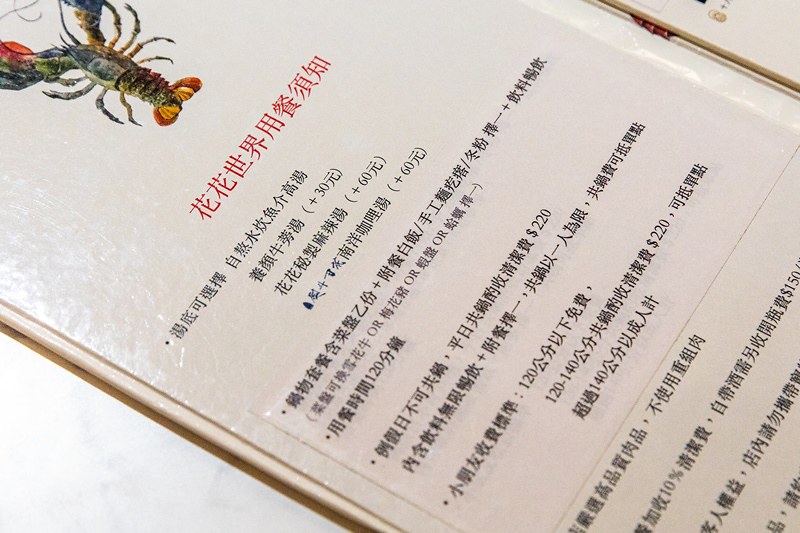 花花世界用餐須知
•湯底可選擇 自熬水炊魚介高湯
養顏牛蒡湯（+30元）
花花秘製麻辣湯（+60元）
南洋咖哩湯（+60元）
•鍋物套餐含菜盤乙份+附餐白飯/手工麵疙瘩/冬粉 擇一+飲料暢飲
（菜盤可換雪花牛 OR 梅花豬 OR 蝦盤 OR 蛤蠣 擇一）
•用餐時間120分鐘
•例假日不可共鍋，平日共鍋酌收清潔費＄220
內含飲料無限暢飲+附餐擇一，共鍋以一人為限，共鍋費可抵單點
•小朋友收費標準：120公分以下免費，
120-140公分共鍋酌收清潔費＄220，可抵單點
超過140公分以成人計
嚴選高品質肉品，不使用重組肉
加收10%清潔費，自帶酒需另收開瓶費$150
客人權益，店內請勿攜帶
品，請